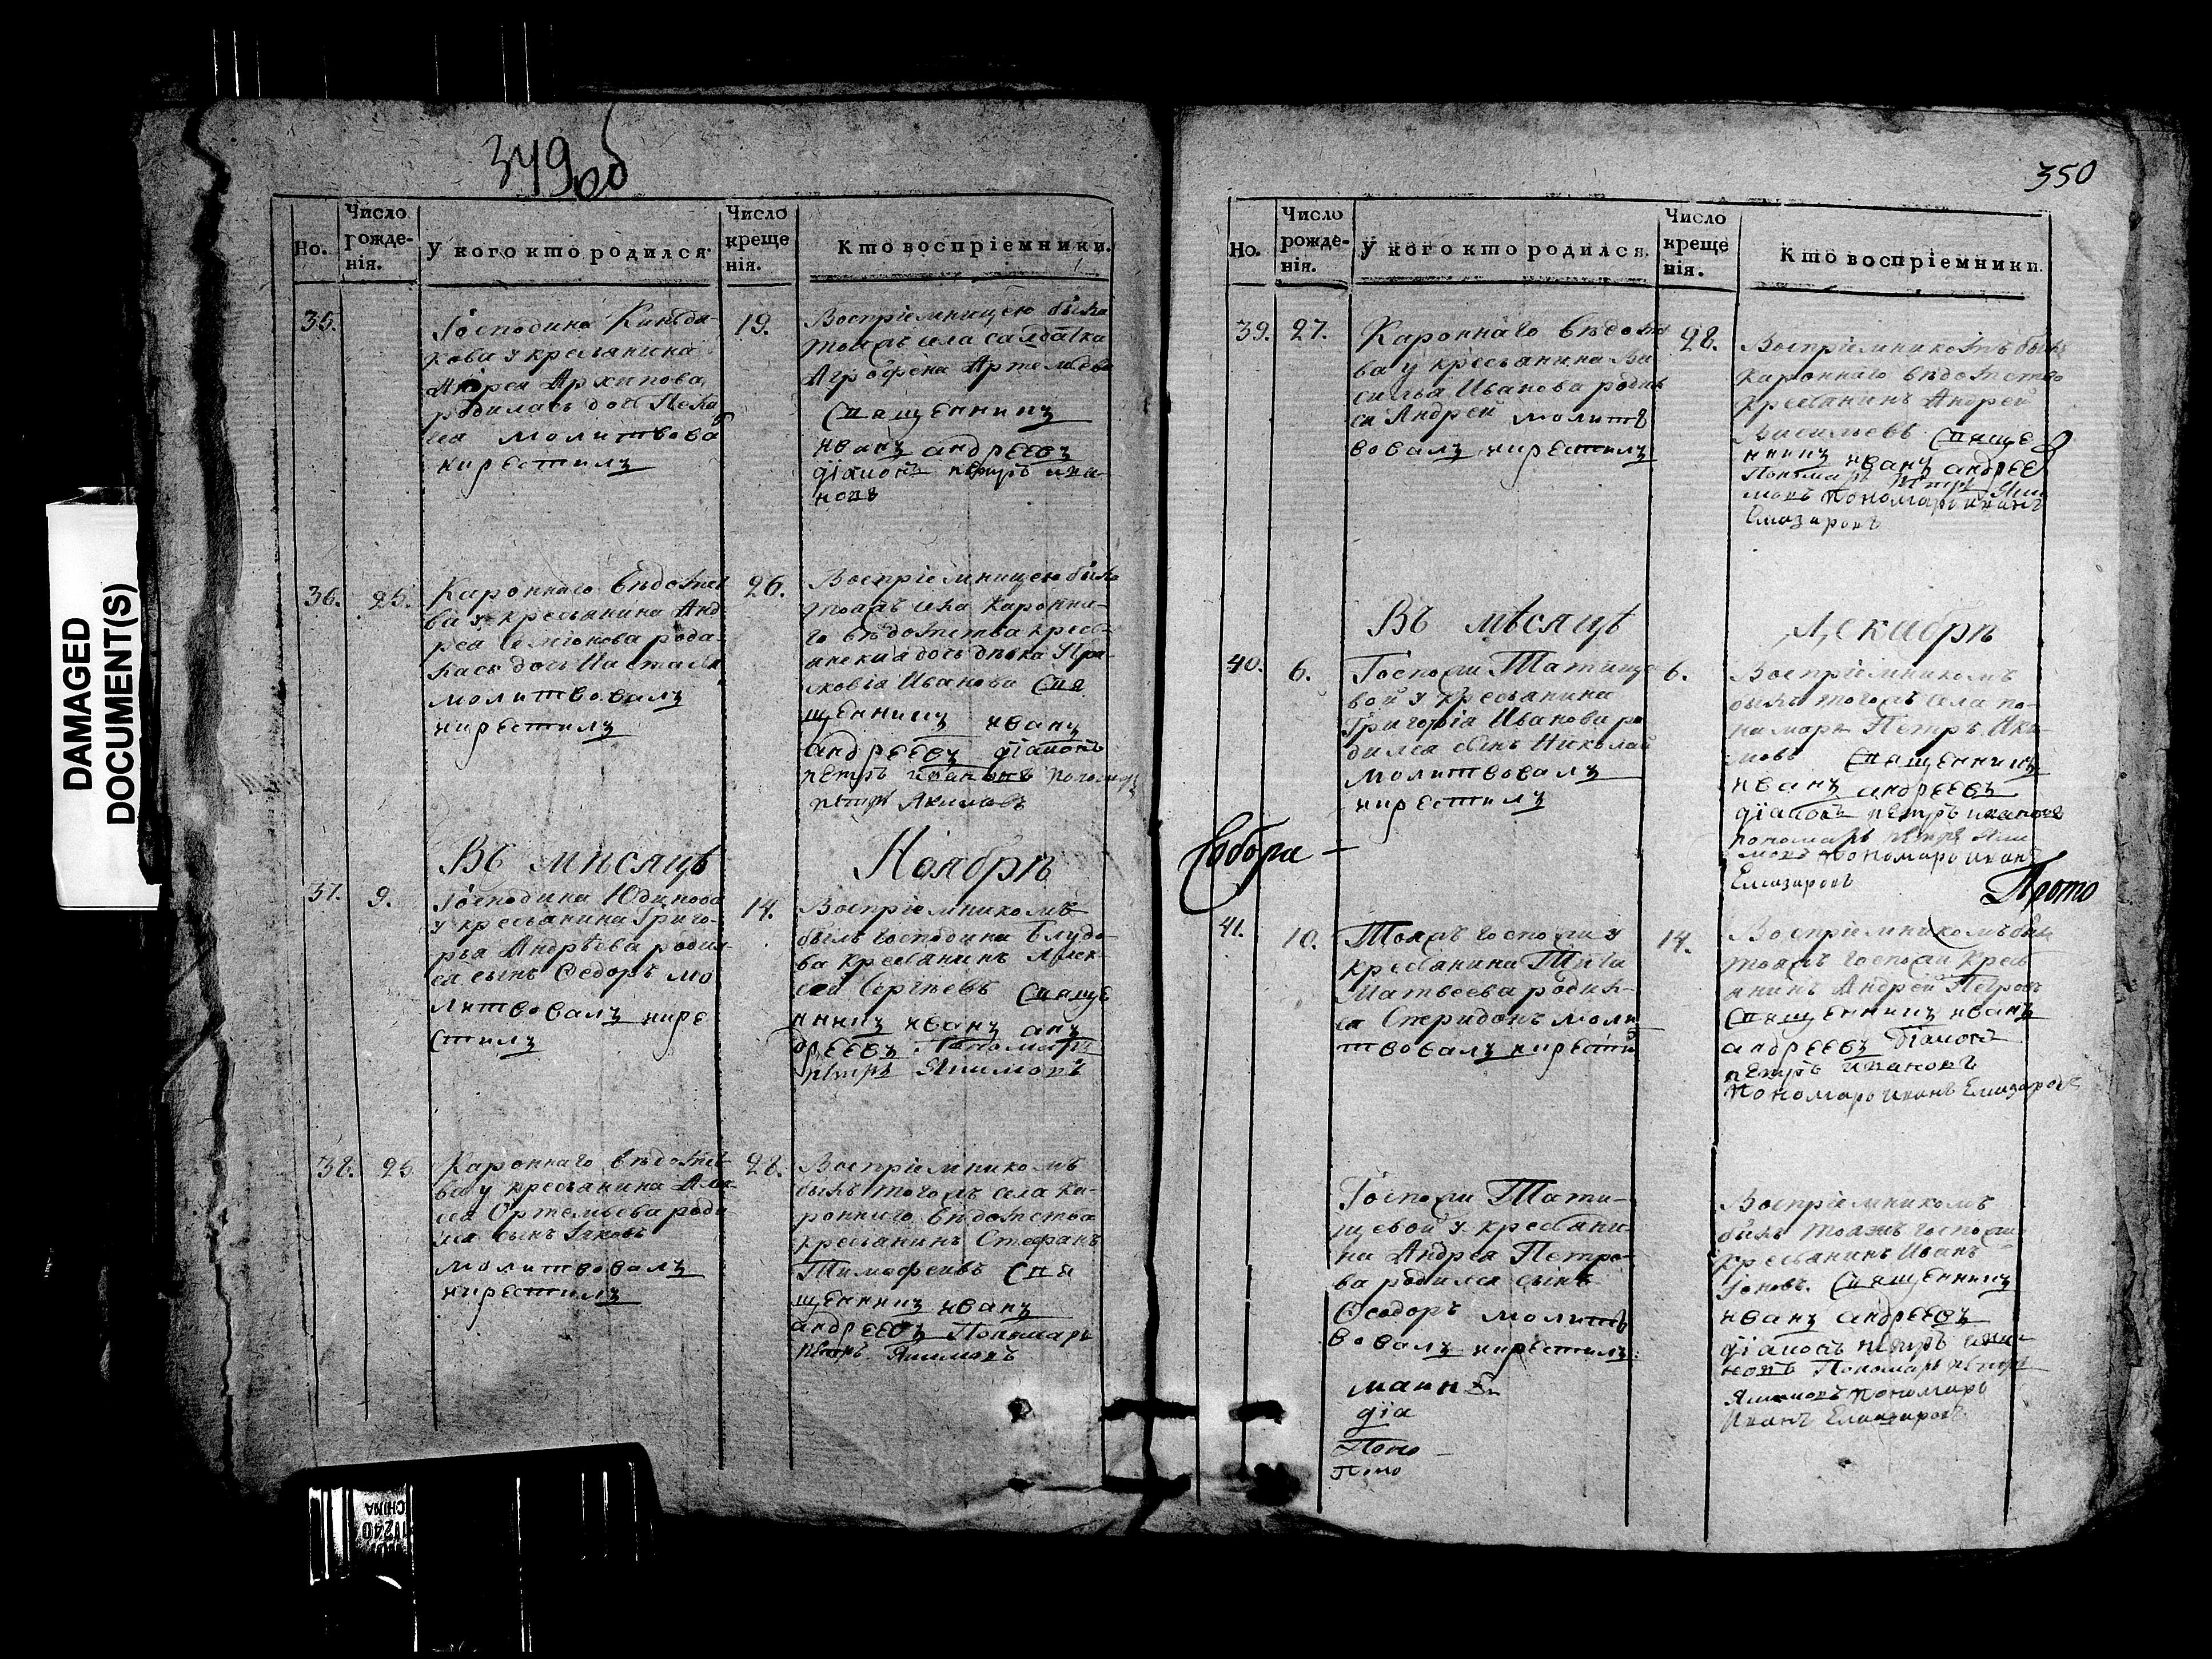 349 об
Но.
Число рожденія.
У кого кто родился.
Число крещенія.
Кто воспріемники.
35.
Господина
кова у крестьянина
Андрея Архипова
родилась дочь
молитвовал
и крестилъ
19.
Воспріемницею была
тогожъ села салдатка
Агрофена Артемьева
Священникъ
иванъ андреевъ
діаконъ петръ ива-
новъ
36.
25.
Кароннаго ведомст
ва у крестьянина Анд
рея Семіонова роди-
лась дочь Настасья
молитвовалъ
и крестилъ
26.
Воспріемницею была
тогожъ села каронна-
го ведомства кресть-
янская дочь девка Пра-
сковія Иванова Свя
щенникъ иванъ
андреевъ діаконъ
петръ ивановъ пономарь
петръ Якимовъ
Въ месяце Ноябре
37.
9.
Господина Юдинова
у крестьянина Григо-
рья Андреева родил-
ся сынъ Федоръ мо
литвовалъ и кре
стилъ
14.
Воспріемникомъ
былъ господина Блудо-
ва крестьянинъ Алек-
сей Сергеевъ Свяще
нникъ иванъ ан
дреевъ Пономарь
петръ Якимовъ
38.
25
Кароннаго ведомст
ва у крестьянина Алек-
сея Ортемьева роди
лся сынъ Iяковъ
молитвовалъ
и крестилъ
28.
Воспріемникомъ
былъ тогожъ села ка-
ронного ведомства
крестьянинъ Стефанъ
Тимофеивъ Свя
щенникъ иванъ
андреевъ Пономарь
петръ Якимовъ
350
Но.
Число рожденія.
У кого кто родился.
Число крещенія.
Кто воспріемники.
39.
27.
Кароннаго ведомст
ва у крестьянина Ва
силья Иванова родил
ся Андрей молитв
вовалъ и крестилъ
28.
Воспріемникомъ былъ
кароннаго ведомства
крестьянинъ Андрей
Васильевъ Священ
никъ иванъ андреев
Пономарь петръ Яки
мовъ пономарь иванъ
Елизаровъ
Въ месяце Декабре
40.
6.
Госпожи Татище
вой у крестьянина
Григорія Иванова ро
дился сынъ Николай
молитвовалъ
и крестилъ
6.
Воспріемникомъ
былъ тогожъ села по-
намарь Петръ Яки-
мовъ Священникъ
иванъ андреевъ
діаконъ петръ ивановъ
пономарь петръ Яки
мовъ пономарь иванъ
Елизаровъ
Собора —
Прото
41.
10.
Тояжъ госпожи у
крестьянина Тита
Матвеева родил-
ся Спиридонъ моли
твовалъ и крести
14.
Воспріемникомъ былъ
тояжъ госпожи крест
янинъ Андрей Петровъ
Священникъ иванъ
андреевъ діаконъ
петръ ивановъ
пономарь иванъ Елизаровъ
Госпожи Тати-
щевой у крестьяни-
на Андрея Петро-
ва родился сынъ
Феодоръ молитв
вовалъ и крестилъ
Воспріемникомъ
былъ тояжъ госпожи
крестьянинъ Иванъ
Iоновъ. Священникъ
иванъ андреевъ
діаконъ петръ ива-
новъ Пономарь петръ
Якимовъ пономарь
Иванъ Елизаровъ
діа
Поно —
Поно
DAMAGED
DOCUMENT(S)